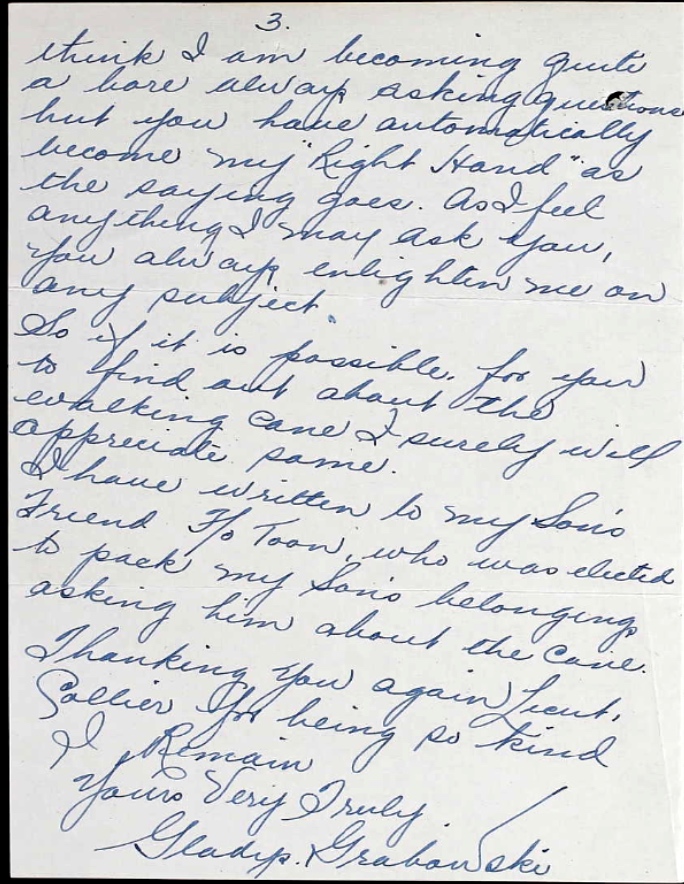 3.
think I am becoming quite
a bore always asking questions
but you have automatically
become my "Right Hand" as
the saying goes. As I feel
anything I may ask you,
you always enlighten me on
any subject.
So if it is possible for you
to find out about the
walking cane I surely will
appreciate same.
I have written to my Son's
Friend F/o Toon, who was elected
to pack my Son's belongings
asking him about the cane.
Thanking you again Lieut.
Collier for being so kind
I Remain
Yours Very Truly.
Gladys. Grabowski